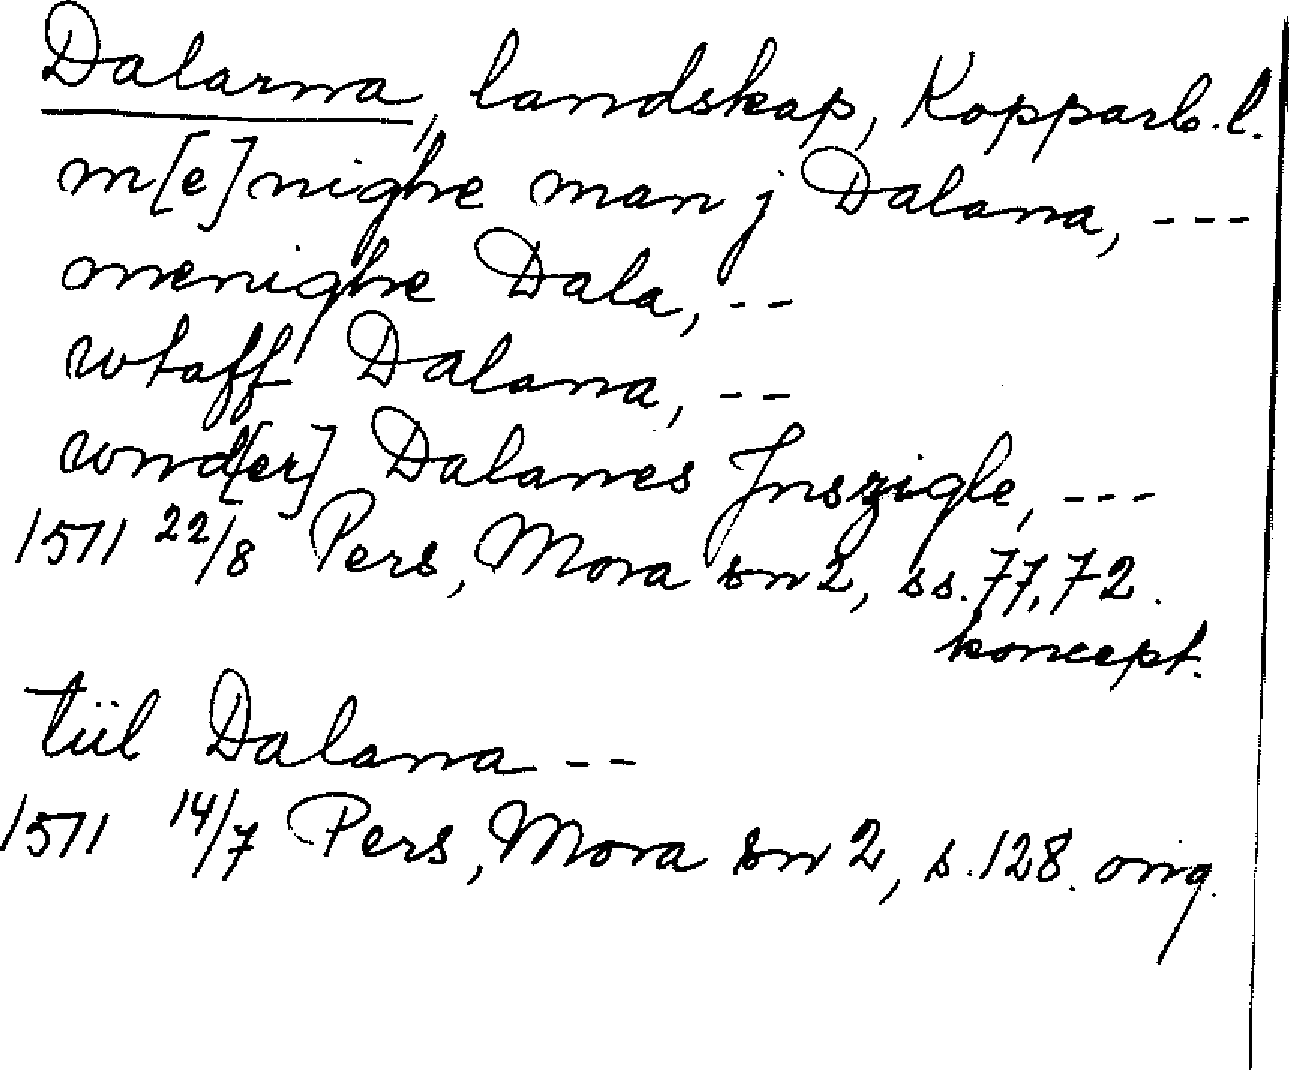 Dalarna, landskap, Kopparb. l.
m[e]nighe man j Dalana, ---
menighe Dala, --
wtaff Dalana, --
wnd[er] Dalanes Jnszigle, ---
1511 22/8 Pers, Mora sn 2, ss. 71, 72.
koncept.
tiil Dalana --
1511 14/7 Pers, Mora sn 2, s. 128. orig.